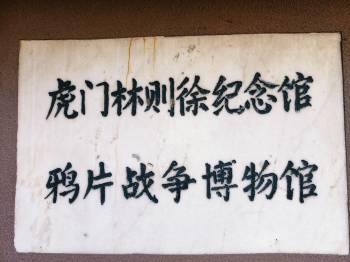 虎门林则徐纪念馆
鸦片战争博物馆